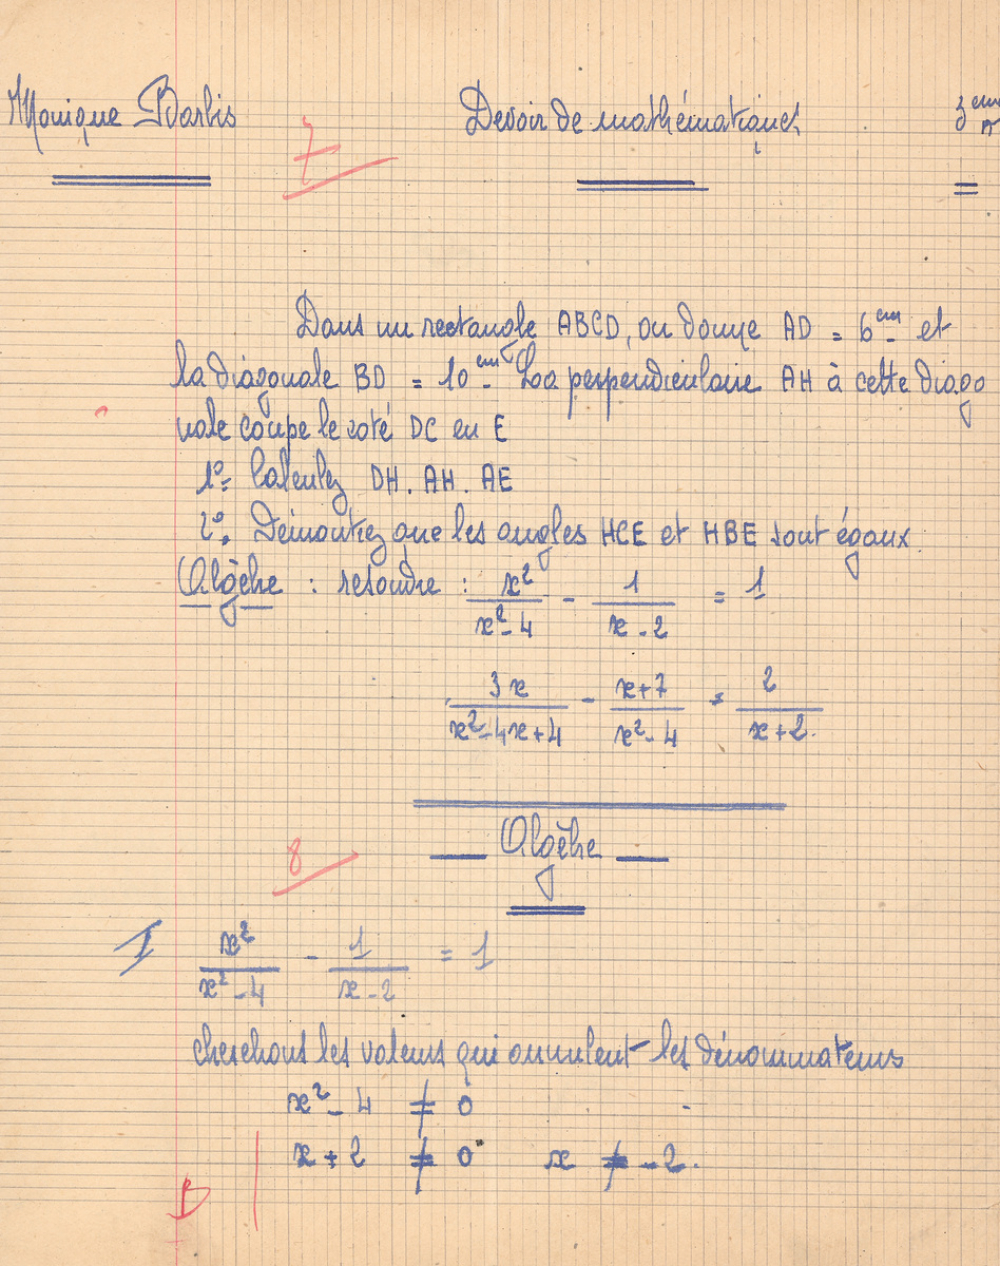 Monique Barbis Devoir de mathématiques 3ème A
7
Dans un rectangle ABCD, on donne AD = 6cm et
la diagonale BD = 10cm. La perpendiculaire AH à cette diago
nale coupe le coté DC en E
1º= Calculez DH. AH. AE
2º. Démontrez que les angles HCE et HBE sont égaux.
Algèbre : resoudre : x²/(x²-4) - 1/(x-2) = 1
3x/(x²-4x+4) - (x+7)/(x²-4) = 2/(x+2).
8
Algèbre
I x²/(x²-4) - 1/(x-2) = 1
cherchons les valeurs qui annulent les dénominateurs
x² - 4 ≠ 0
x + 2 ≠ 0 x ≠ -2.
B